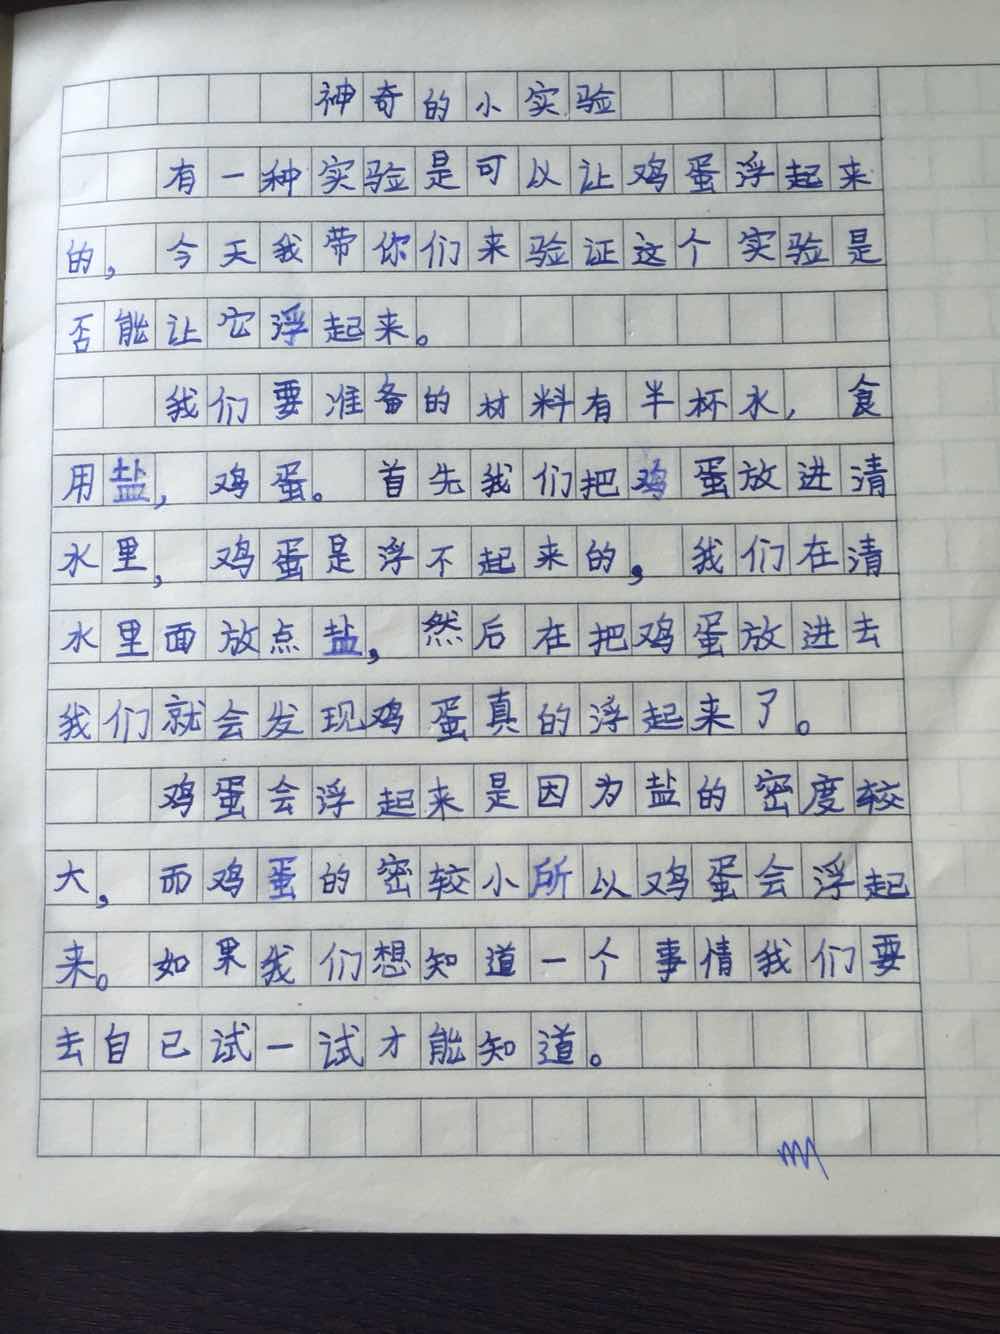 神奇的小实验
有一种实验是可以让鸡蛋浮起来
的，今天我带你们来验证这个实验是
否能让它浮起来。
我们要准备的材料有半杯水，食
用盐，鸡蛋。首先我们把鸡蛋放进清
水里，鸡蛋是浮不起来的，我们在清
水里面放点盐，然后在把鸡蛋放进去
我们就会发现鸡蛋真的浮起来了。
鸡蛋会浮起来是因为盐的密度较
大，而鸡蛋的密较小所以鸡蛋会浮起
来。如果我们想知道一个事情我们要
去自己试一试才能知道。